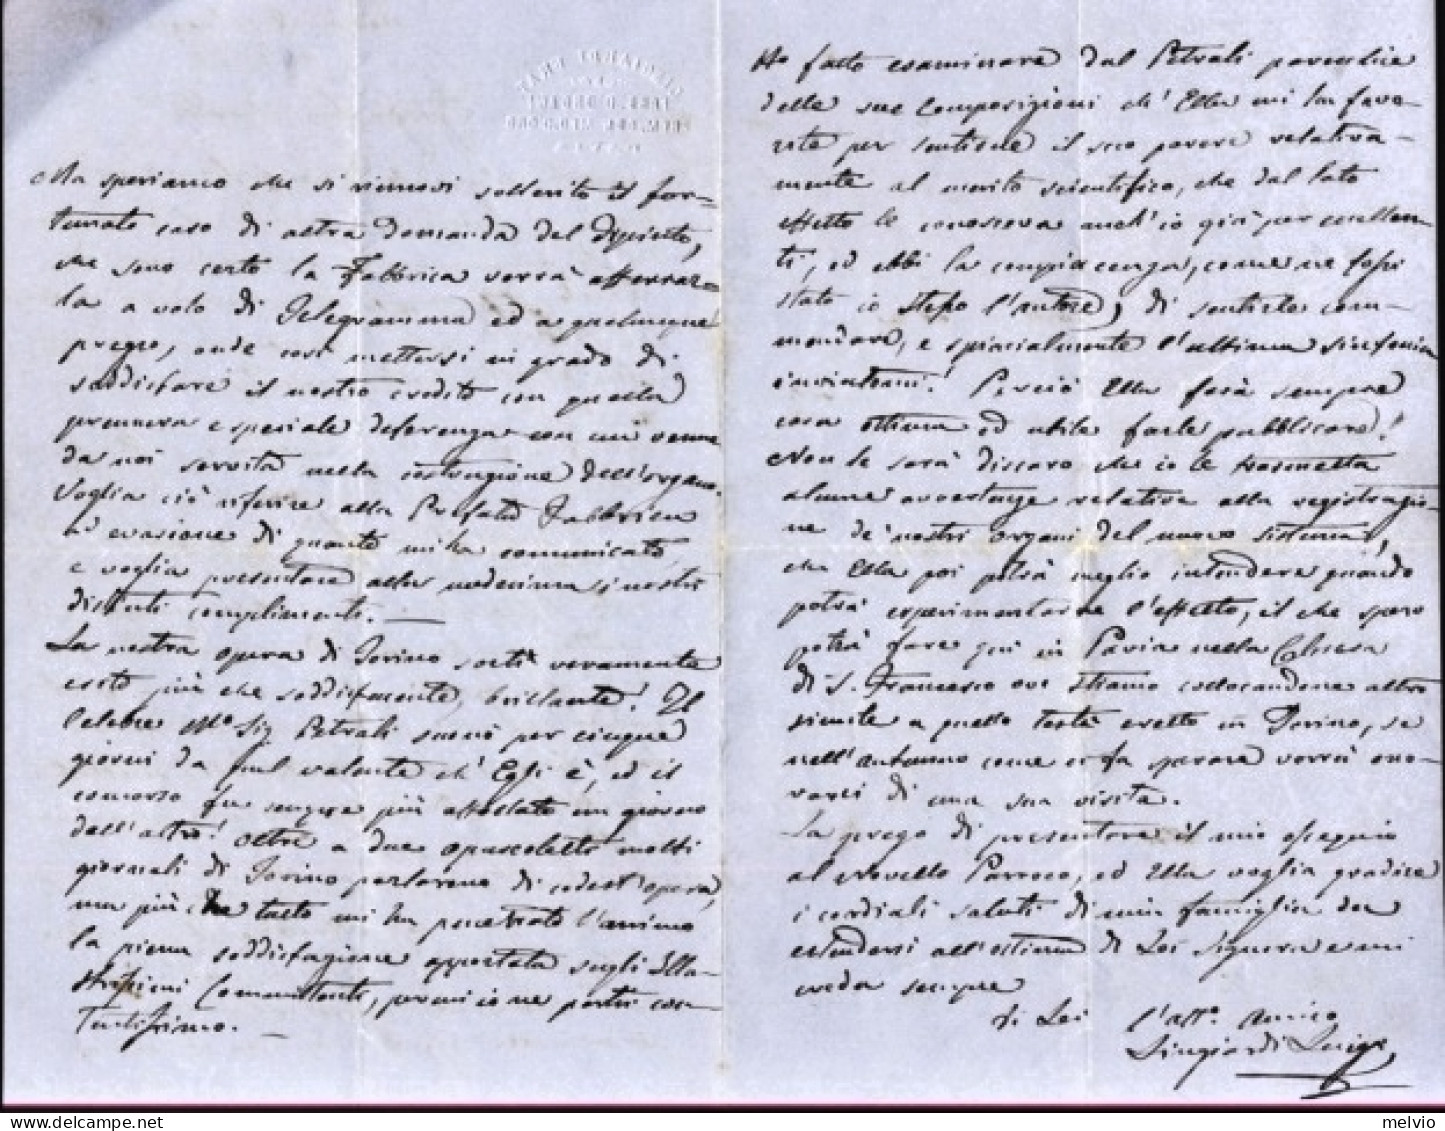 Ma speriamo che si rinnovi sollecito il for-
tunato caso di altra domanda del
che sono certo la Fabbrica vorrà afferrar-
la a volo di Telegramma ed a qualunque
prezzo, onde così mettersi in grado di
soddisfare il nostro credito con quella
premura e speciale deferenza con cui venne
da noi servita nella costruzione dell'organo.
Voglia ciò riferire alla Prefata Fabbrica
ad evasione di quanto mi ha comunicato,
e voglia presentare alla medesima i nostri
distinti complimenti. —
La nostra opera di Torino sortì veramente
esito più che soddisfacente, brillante! Il
celebre M° Sig Petrali suonò per cinque
giorni da quel valente ch'Egli è, ed il
concorso fu sempre più affollato un giorno
dell'altro! Oltre a due opuscoletti molti
giornali di Torino parlarono di codest'opera,
ma più che tutto mi ha penetrato l'animo
la piena soddisfazione apportata sugli Illu-
strissimi Committenti, perciò ne partii con-
tentissimo. —
Ho fatto esaminare dal Petrali parecchie
delle sue Composizioni ch'Ella mi ha favo-
rite per sentirne il suo parere relativa-
mente al merito scientifico, che dal lato
effetto le conosceva anch'io già per eccellen-
ti, ed ebbi la compiacenza, come ne fossi
stato io stesso l'autore, di sentirle com-
mendare, e specialmente l'ultima sinfonia
inviatami! Perciò Ella farà sempre
cosa ottima ed utile farle pubblicare!
Non le sarà discaro che io le trasmetta
alcune avvertenze relative alla registrazio-
ne de' nostri organi del nuovo sistema,
che Ella poi potrà meglio intendere quando
potrà esperimentarne l'effetto, il che spero
potrà fare qui in Pavia nella Chiesa
di S. Francesco ove stiamo collocandone altro
simile a quello testè eretto in Torino, se
nell'autunno come ci fa sperare vorrà ono-
rarci di una sua visita.
La prego di presentare il mio ossequio
al novello Parroco, ed Ella voglia gradire
i cordiali saluti di mia famiglia da
estendersi all'ottima di Lei Signora e mi
creda sempre
di Lei l'aff.° Amico
Lingiardi Luigi
melvio